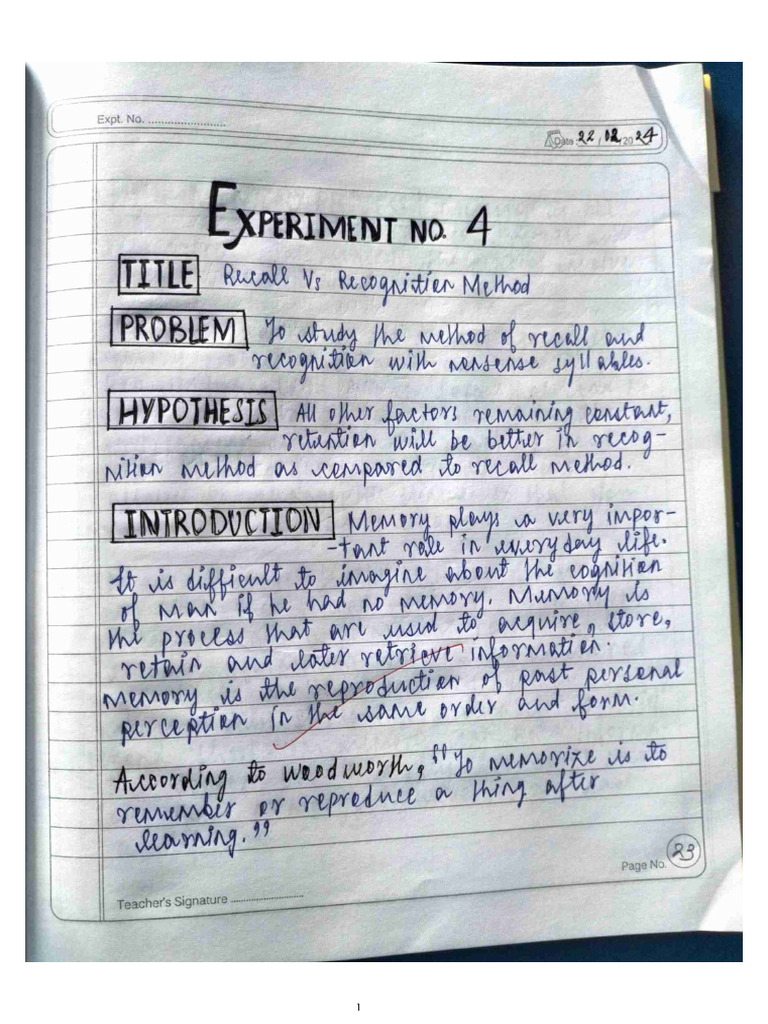 Expt. No.
Date 22 / 02 / 20 24
EXPERIMENT NO. 4
TITLE Recall Vs Recognition Method
PROBLEM To study the method of recall and
recognition with nonsense syllables.
HYPOTHESIS All other factors remaining constant,
retention will be better in recog-
nition method as compared to recall method.
INTRODUCTION Memory plays a very impor-
-tant role in everyday life.
It is difficult to imagine about the cognition
of man if he had no memory. Memory is
the process that are used to acquire, store,
retain and later retrieve information.
Memory is the reproduction of past personal
perception in the same order and form.
According to woodworth, "To memorize is to
remember or reproduce a thing after
learning."
Page No. 23
Teacher's Signature
1